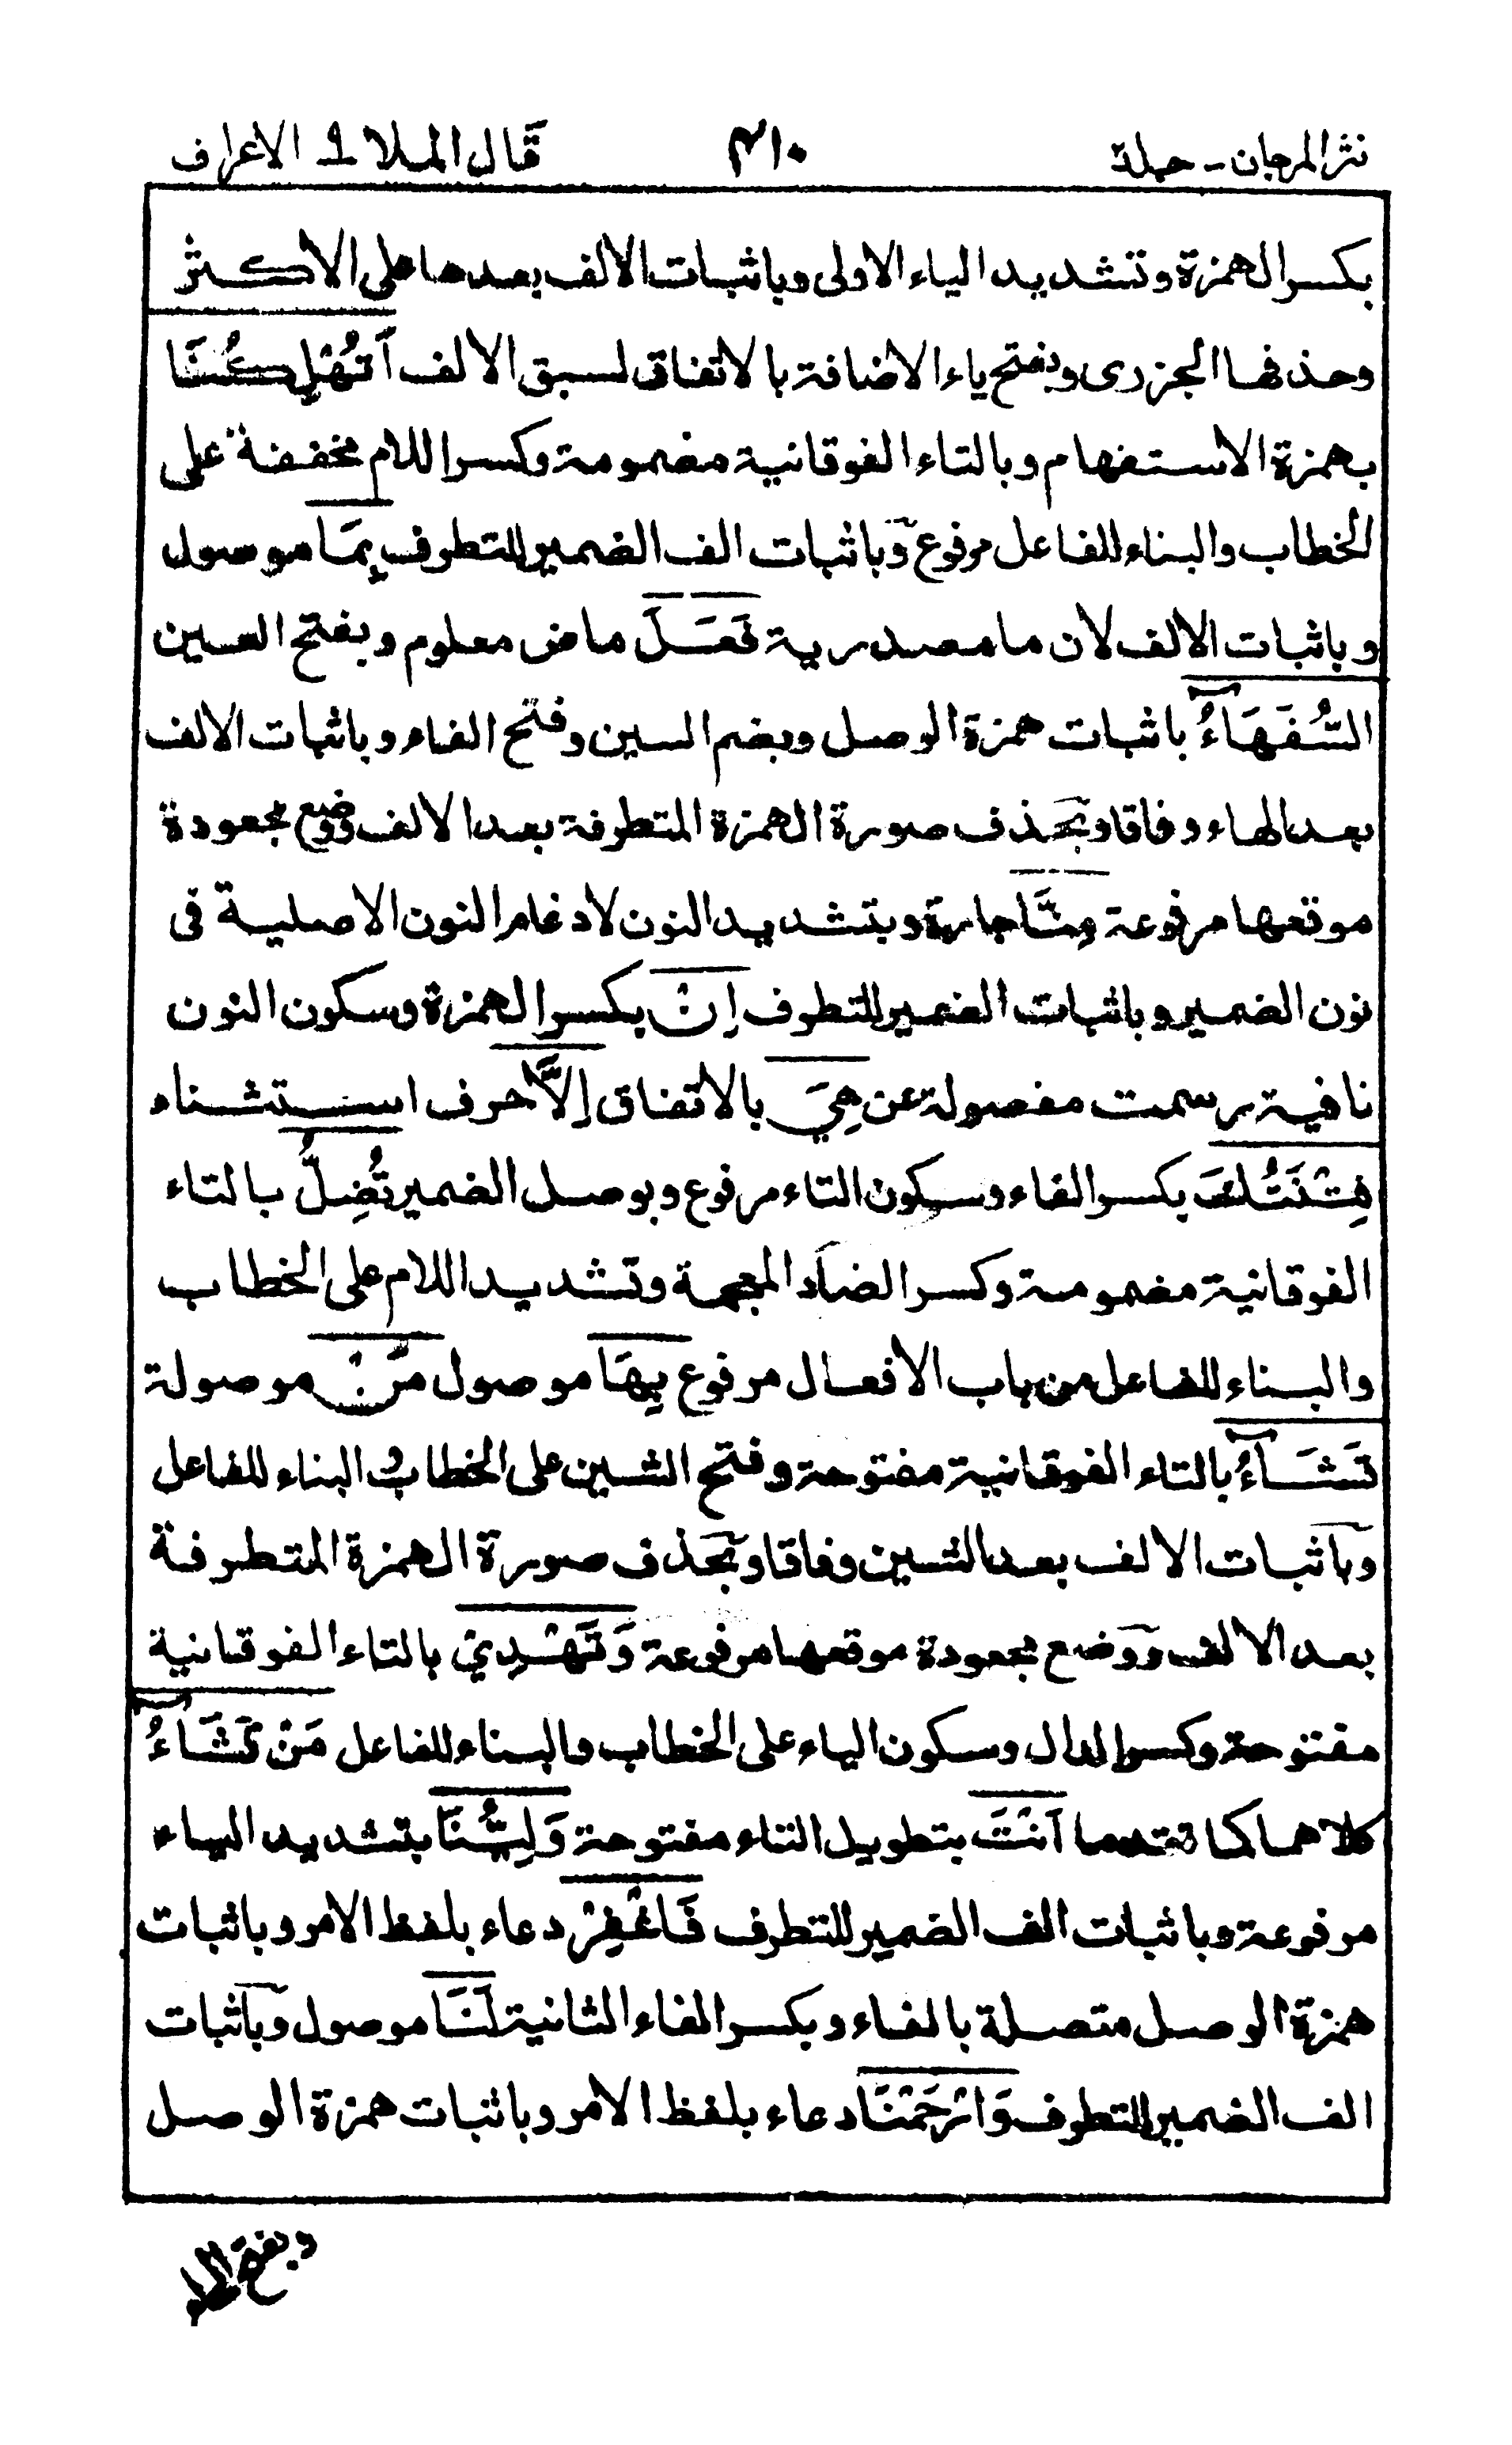 نثر المرجان - جملة ٣١٠ قال الملا ٩ الاعراف
بكسر الهمزة وتشديد الياء الاولى وباثبات الالف بعدها على الاكثر
وحذفها الجزرى وبفتح ياء الاضافة بالاتفاق لسبق الالف اَتُهْلِكُنَا
بهمزة الاستفهام وبالتاء الفوقانية مضمومة وكسر اللام مخففة على
الخطاب والبناء للفاعل مرفوع وباثبات الف الضمير للتطرف بِمَا موصول
وباثبات الالف لان ما مصدرية فَعَلَ ماض معلوم وبفتح العين
السُّفَهَآءُ باثبات همزة الوصل وبضم السين وفتح الفاء وباثبات الالف
بعد الهاء وفاقا وبحذف صورة الهمزة المتطرفة بعد الالف ووضع مجعودة
موقعها مرفوعة مِنَّا جارة وبتشديد النون لادغام النون الاصلية فى
نون الضمير وباثبات الضمير للتطرف اِنْ بكسر الهمزة وسكون النون
نافية رسمت مفصولة عن هِيَ بالاتفاق اِلَّا حرف استثناء
فِتْنَتُكَ بكسر الفاء وسكون التاء مرفوع وبوصل الضمير تُضِلُّ بالتاء
الفوقانية مضمومة وكسر الضاد المعجمة وتشديد اللام على الخطاب
والبناء للفاعل من باب الافعال مرفوع بِهَا موصول مَنْ موصولة
تَشَآءُ بالتاء الفوقانية مفتوحة وفتح الشين على الخطاب والبناء للفاعل
وباثبات الالف بعد الشين وفاقا وبحذف صورة الهمزة المتطرفة
بعد الالف ووضع مجعودة موقعها مرفوعة وَتَهْدِيْ بالتاء الفوقانية
مفتوحة وكسر الدال وسكون الياء على الخطاب والبناء للفاعل مَنْ تَشَآءُ
كلاهما كما تقدما اَنْتَ بتطويل التاء مفتوحة وَلِيُّنَا بتشديد الياء
مرفوعة وباثبات الف الضمير للتطرف فَاغْفِرْ دعاء بلفظ الامر وباثبات
همزة الوصل متصلة بالفاء وبكسر الفاء الثانية لَنَا موصول وباثبات
الف الضمير للتطرف وَارْحَمْنَا دعاء بلفظ الامر وباثبات همزة الوصل
وبفتح